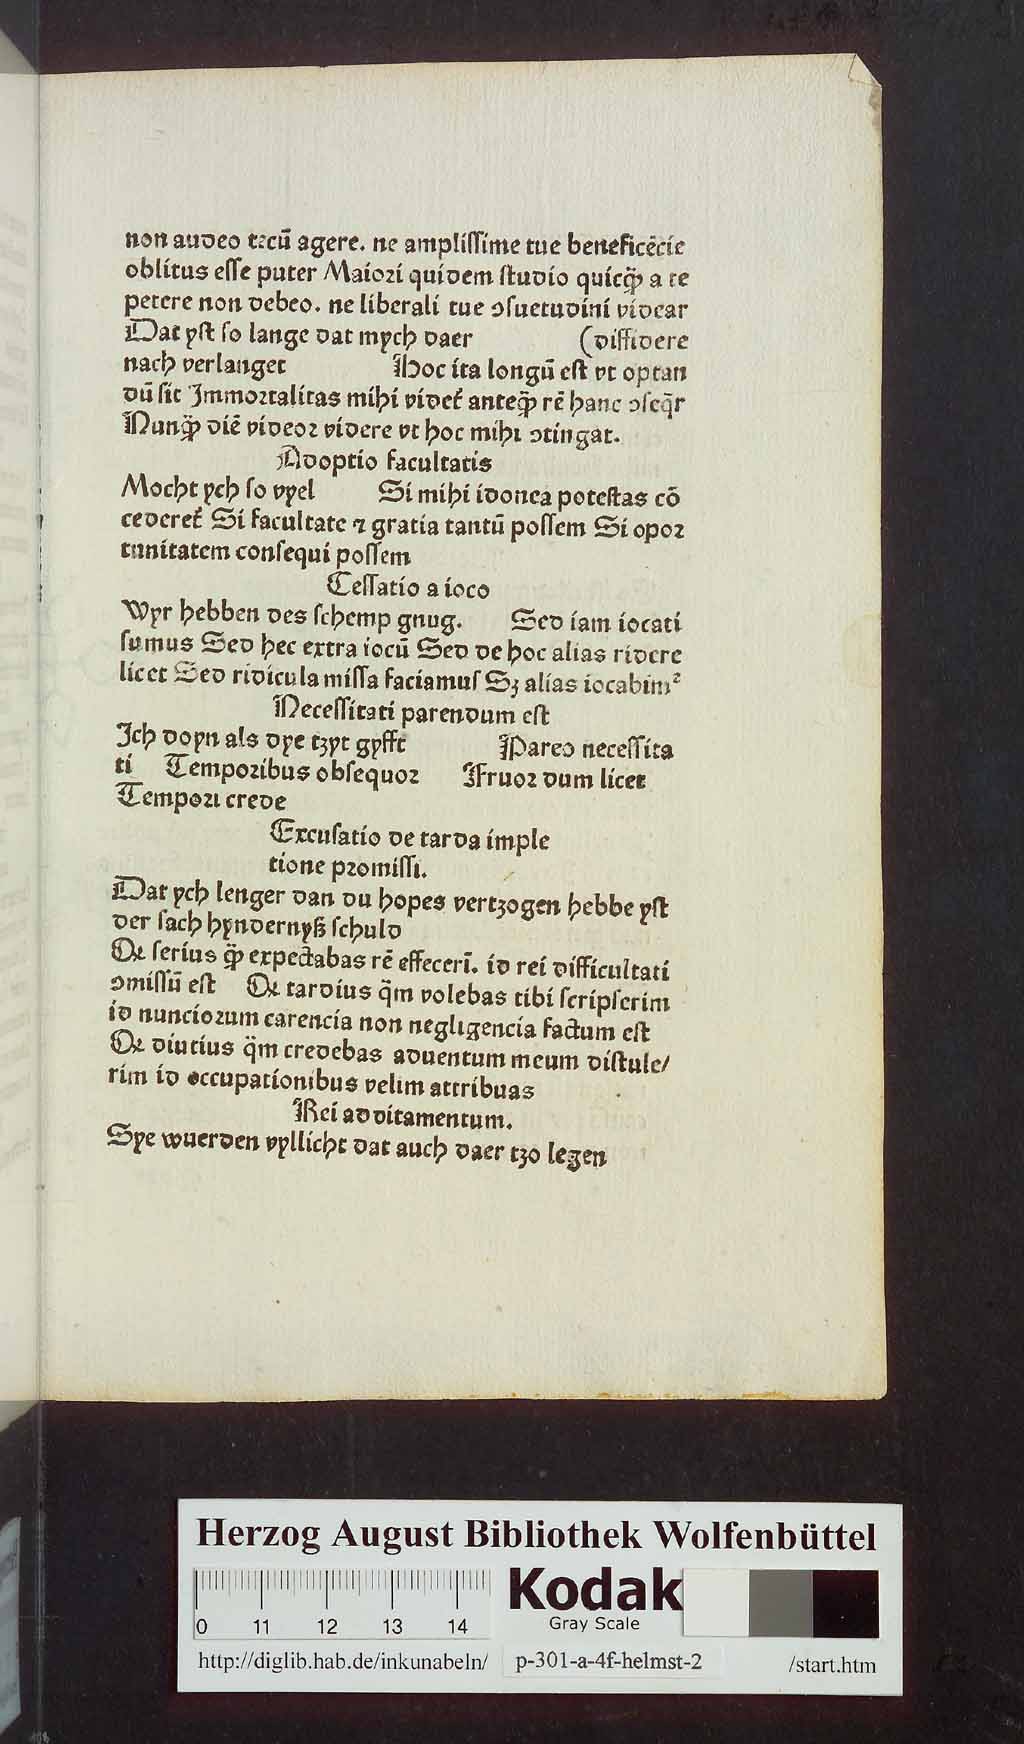 non audeo tecū agere. ne ampliſſime tue beneficēcie
oblitus eſſe puter Maiori quidem ſtudio quicꝙ̄ a te
petere non debeo. ne liberali tue ↄſuetudini videar
Dat yſt ſo lange dat mych daer (diffidere
nach verlanget Hoc ita longū eſt vt optan
dū ſit Immortalitas mihi videt᷑ anteꝙ̄ rē hanc ↄſeq̄r
Nunꝙ̄ diē videor videre vt hoc mihi ↄtingat.
Adoptio facultatis
Mocht ych ſo vyel Si mihi idonea poteſtas cō
cederet᷑ Si facultate ⁊ gratia tantū poſſem Si opor
tunitatem conſequi poſſem
Ceſſatio a ioco
Wyr hebben des ſchemp gnug. Sed iam iocati
ſumus Sed hec extra iocū Sed de hoc alias ridere
licet Sed ridicula miſſa faciamuſ Sꝫ alias iocabimꝰ
Neceſſitati parendum eſt
Ich doyn als dye tzyt gyfft Pareo neceſſita
ti Temporibus obſequor Fruor dum licet
Tempori crede
Excuſatio de tarda imple
tione promiſſi.
Dat ych lenger dan du hopes vertzogen hebbe yſt
der ſach hyndernyß ſchuld
Qꝫ ſerius ꝙ̄ expectabas rē effecerī. id rei difficultati
ↄmiſſū eſt Qꝫ tardius q̄m volebas tibi ſcripſerim
id nunciorum carencia non negligencia factum eſt
Qꝫ diutius q̄m credebas aduentum meum diſtule/
rim id occupationibus velim attribuas
Rei additamentum.
Sye wuerden vyllicht dat auch daer tzo legen
Herzog August Bibliothek Wolfenbüttel
Kodak
Gray Scale
0 11 12 13 14
http://diglib.hab.de/inkunabeln/ p-301-a-4f-helmst-2 /start.htm